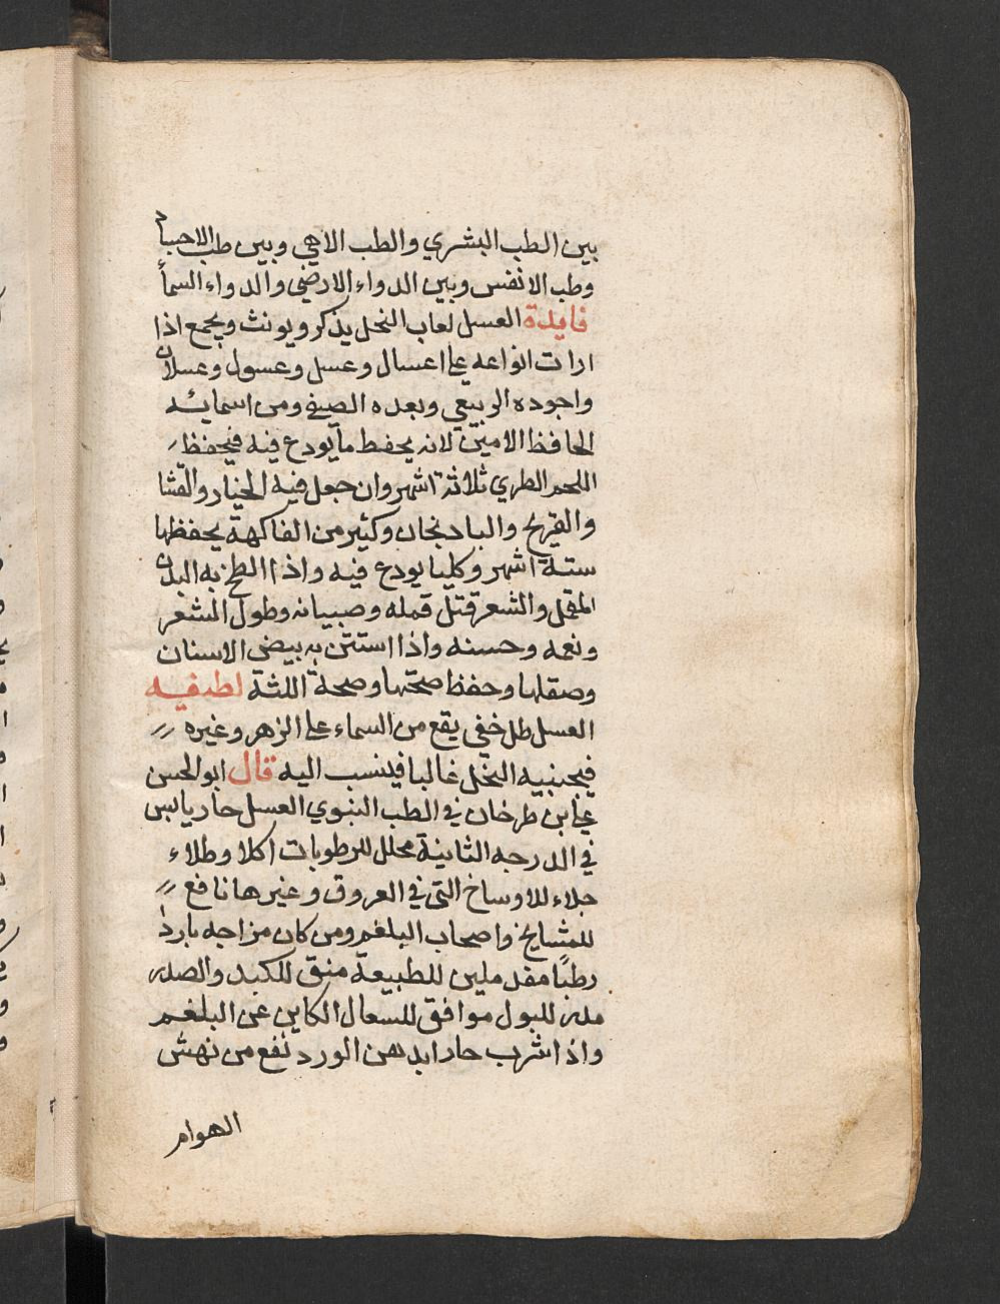 بين الطب البشري والطب الالاهي وبين طب الاجسام
وطب الانفس وبين الدواء الارضي والدواء السمأ
فايدة العسل لعاب النحل يذكر ويونث ويجمع اذا
ارات انواعه على اعسال وعسل وعسول وعسلان
واجوده الربيعي وبعده الصيفي ومن اسمائه
الحافظ الامين لانه يحفظ ما يودع فيه فيحفظ
اللحم الطري ثلاثة اشهر وان جعل فيه الخيار والقثا
والقرع والبادنجان وكثير من الفاكهة يحفظها
ستة اشهر وكلما يودع فيه واذا الطخ به البدن
المقمل والشعر قتل قمله وصيبانه وطول الشعر
ونعمه وحسنه واذا استتن به بيض الاسنان
وصقلها وحفظ صحتها وصحة اللثة لطيفه
العسل طل خفي يقع من السماء على الزهر وغيره
فيجنيه النحل غالبا فينسب اليه قال ابو الحسن
علي بن طرخان في الطب النبوي العسل حار يابس
في الدرجه الثانية محلل للرطوبات اكلا وطلاء
جلاء للاوساخ التي في العروق وغيرها نافع
للمشايخ واصحاب البلغم ومن كان مزاجه باردا
رطبًا مغذ ملين للطبيعة منق للكبد والصدر
مدر للبول موافق للسعال الكاين عن البلغم
واذا شرب حارا بدهن الورد نفع من نهش
الهوام